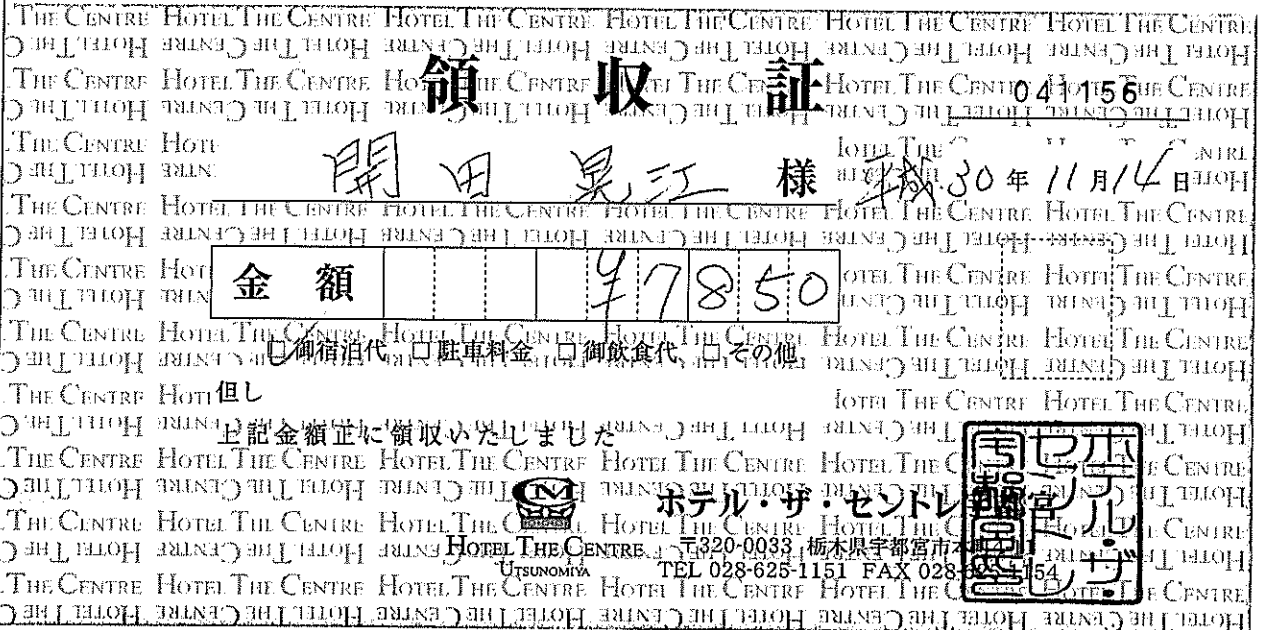 領収証
041156
開田 晃江 様 平成30年11月14日
金額 ¥7850
☑御宿泊代 □駐車料金 □御飲食代 □その他
但し
上記金額正に領収いたしました
CM
ホテル・ザ・セントレ宇都宮
HOTEL THE CENTRE
UTSUNOMIYA
〒320-0033 栃木県宇都宮市本町4-11
TEL 028-625-1151 FAX 028-
ホテル・ザ・セントレ宇都宮